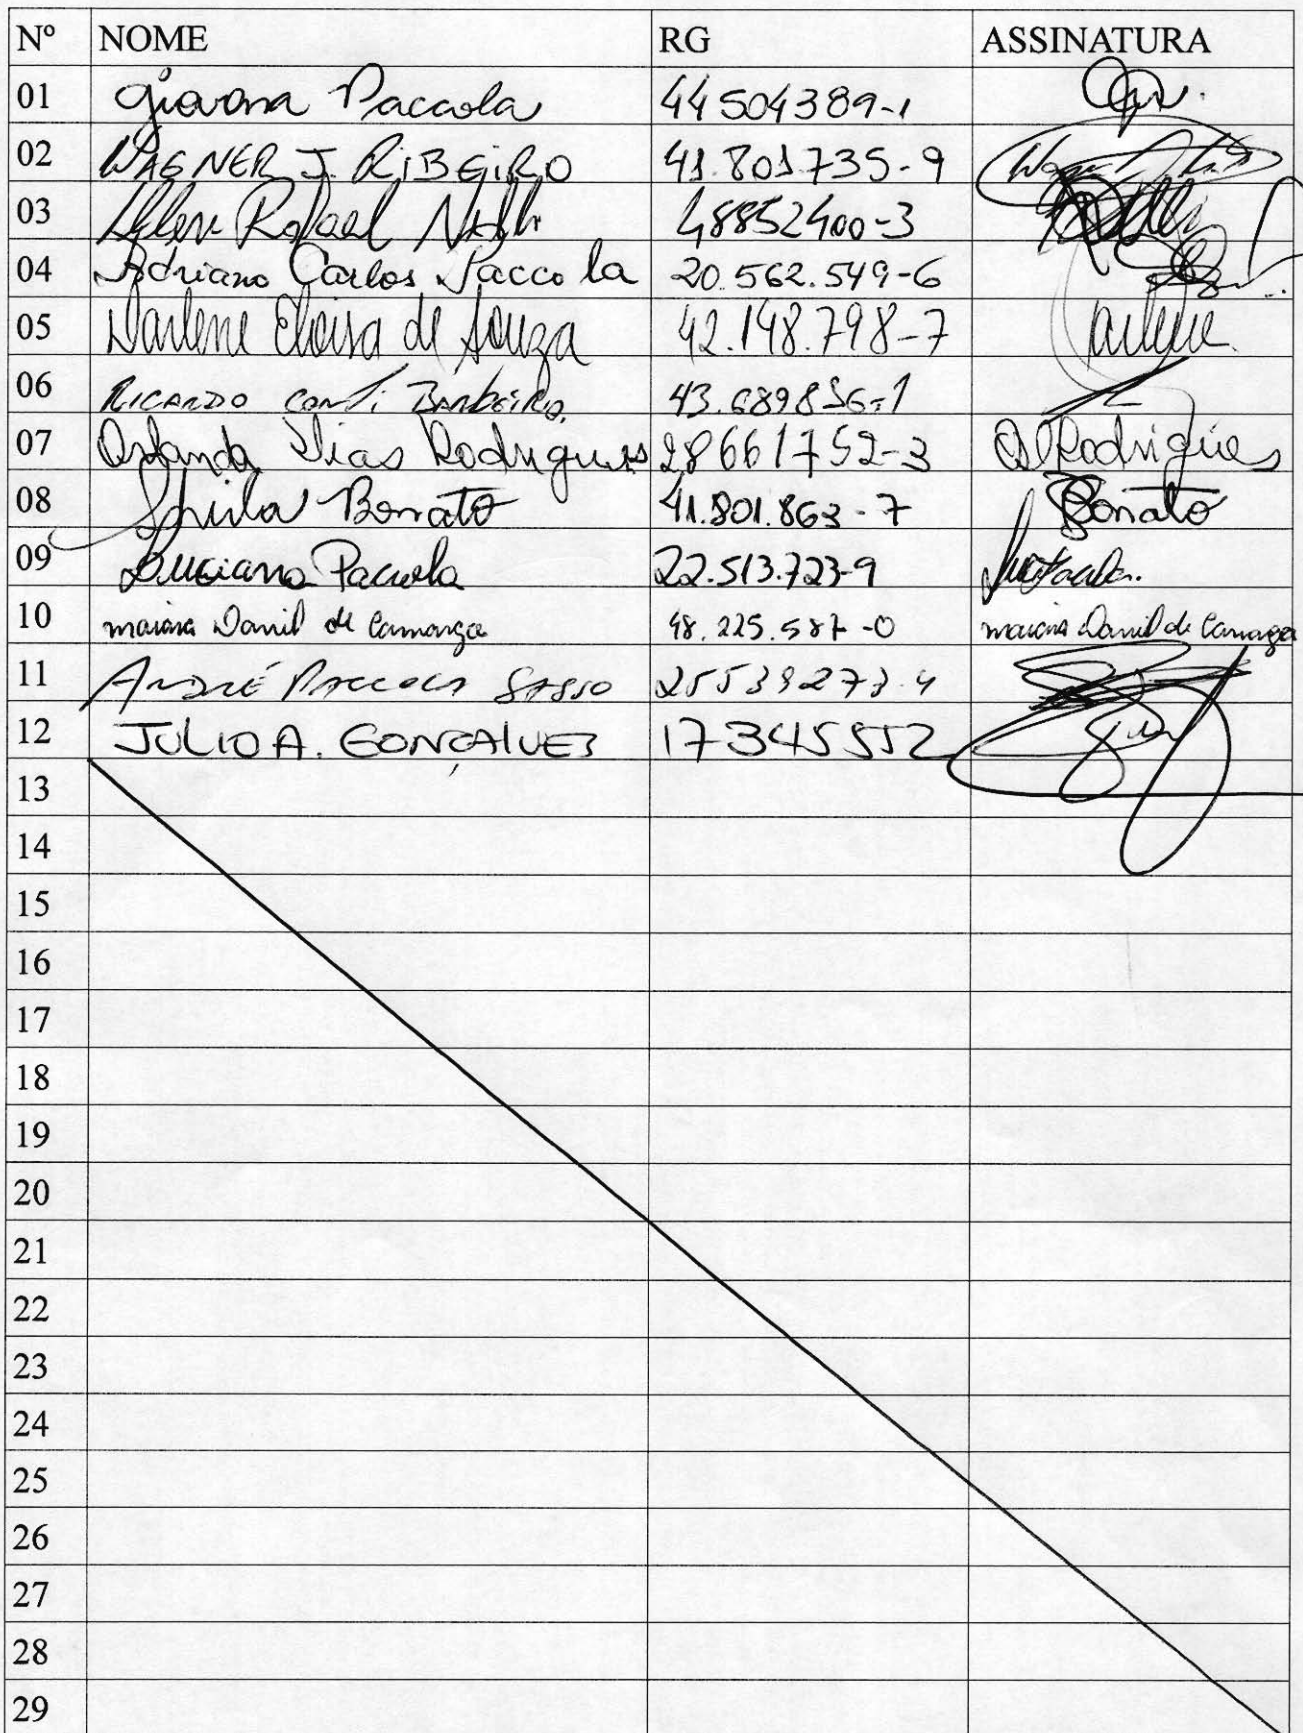 Nº NOME RG ASSINATURA
01 Giovana Paccola 44504389-1
02 WAGNER J. RIBEIRO 41.801.735-9
03 Rafael 48852400-3
04 Adriano Carlos Paccola 20.562.549-6
05 Darlene Eloisa de Souza 42.148.798-7 arlene
06 RICARDO CONTI BARBEIRO 43.689836-1
07 Orlanda Dias Rodrigues 28661752-3 O D Rodrigues
08 Sheila Bonato 41.801.863-7 Bonato
09 Luciana Paccola 22.513.723-9
10 maiara Danil de Camargo 48.225.587-0 maiara Danil de Camargo
11 ANDRÉ PACCOLA SASSO 25539273-4
12 JULIO A. GONÇALVES 17345552
13
14
15
16
17
18
19
20
21
22
23
24
25
26
27
28
29